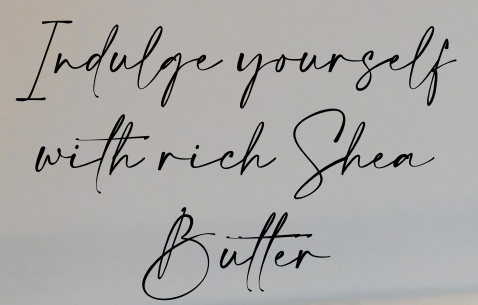 Indulge yourself
with rich Shea
Butter